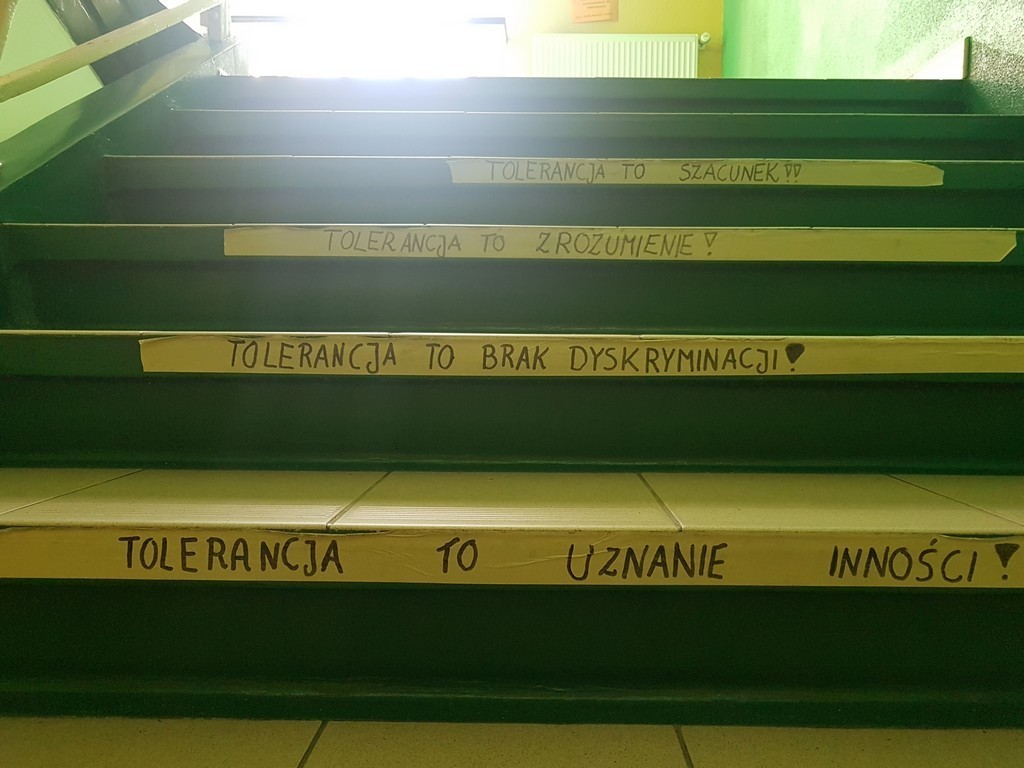 TOLERANCJA TO SZACUNEK!!
TOLERANCJA TO ZROZUMIENIE!
TOLERANCJA TO BRAK DYSKRYMINACJI!
TOLERANCJA TO UZNANIE INNOŚCI!